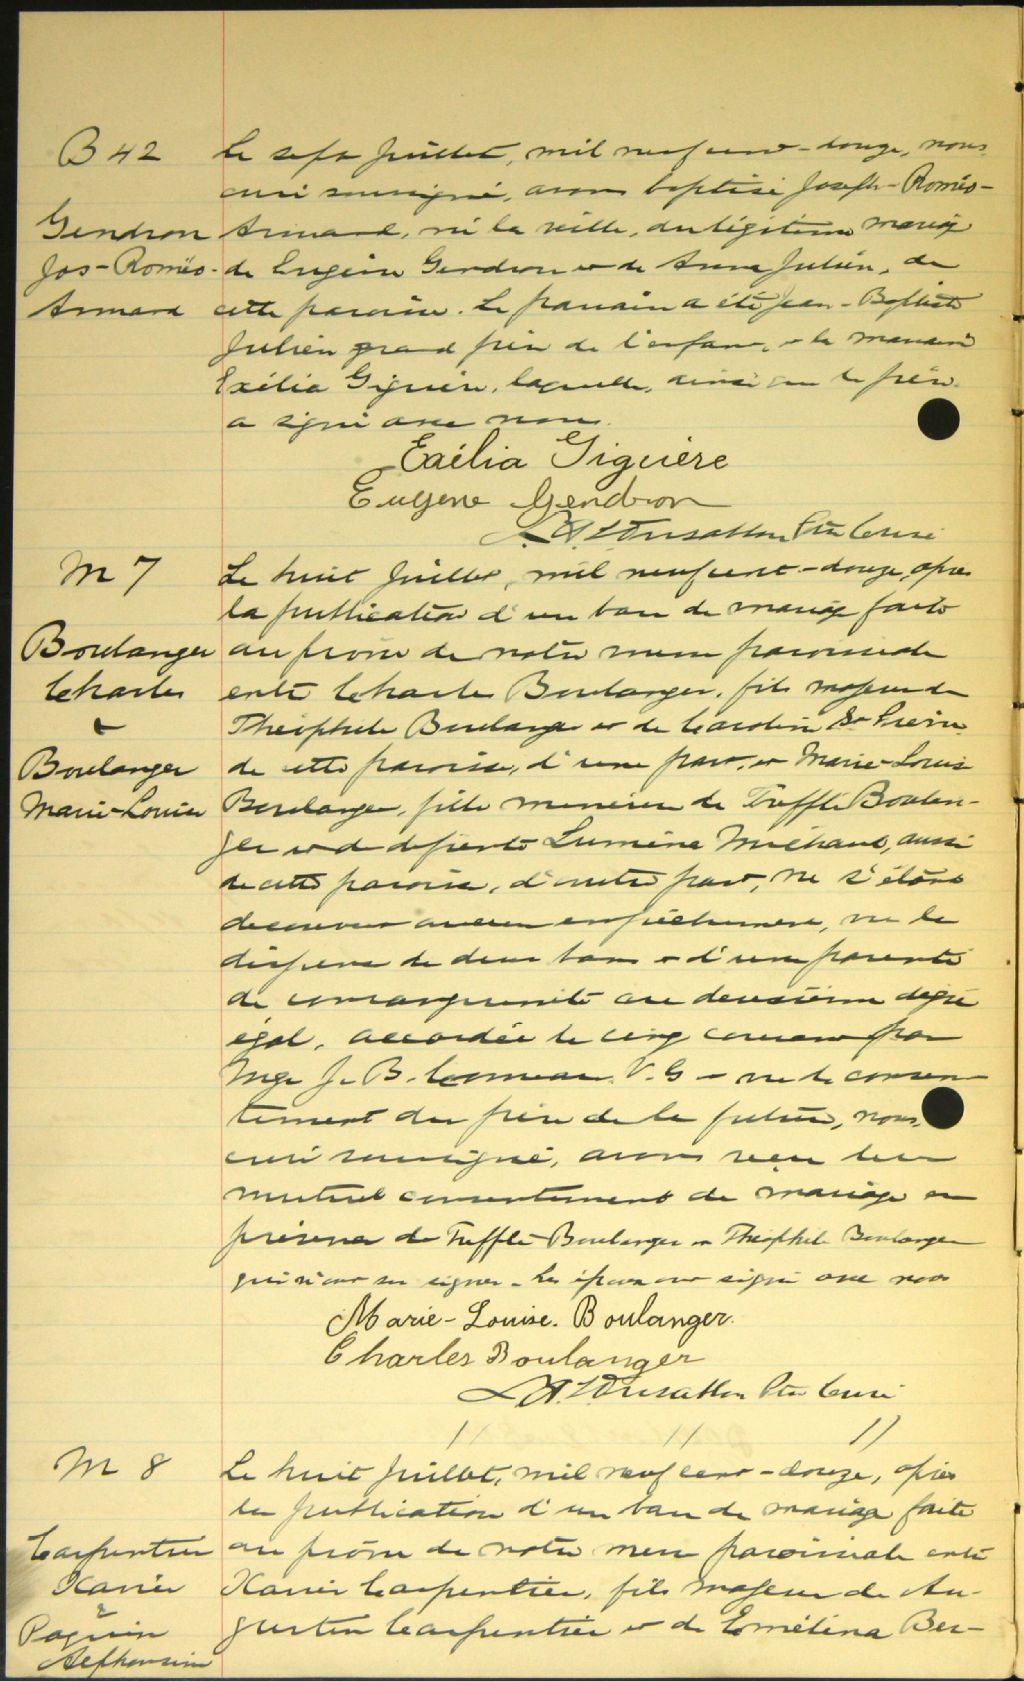 B 42
Gendron
Jos-Roméo-
Armand
Le sept Juillet, mil neuf cent-douze, nous
curé soussigné, avons baptisé Joseph-Roméo-
Armand, né la veille, du légitime mariage
de Eugène Gendron et de Anna Julien, de
cette paroisse. Le parrain a été Jean-Baptiste
Julien grand père de l'enfant, et la marraine
Exélia Giguère, laquelle, ainsi que le père
a signé avec nous.
Exélia Giguère
Eugene Gendron
Ptre Curé
M 7
Boulanger
Charles
&
Boulanger
Marie-Louise
Le huit Juillet, mil neuf cent-douze, après
la publication d'un ban de mariage faite
au prône de notre messe paroissiale
entre Charles Boulanger, fils majeur de
Théophile Boulanger et de Caroline St Pierre
de cette paroisse, d'une part, et Marie-Louise
Boulanger, fille mineure de Trefflé Boulan-
ger et de défunte Lumina Michaud, aussi
de cette paroisse, d'autre part, ne s'étant
découvert aucun empêchement, vu la
dispense de deux bans et d'une parenté
de consanguinité au deuxième degré
égal, accordée le cinq courant par
Mgr J. B. Comeau V. G - vu le consen-
tement du père de la future, nous,
curé soussigné, avons reçu leur
mutuel consentement de mariage en
présence de Trefflé Boulanger et Théophile Boulanger
qui n'ont su signer - Les époux ont signé avec nous
Marie-Louise. Boulanger.
Charles Boulanger
Ptre Curé
M 8
Carpentier
Xavier
&
Paquin
Alphonsine
Le huit Juillet, mil neuf cent-douze, après
la publication d'un ban de mariage faite
au prône de notre messe paroissiale entre
Xavier Carpentier, fils majeur de Au-
gustin Carpentier et de Emélina Ber-